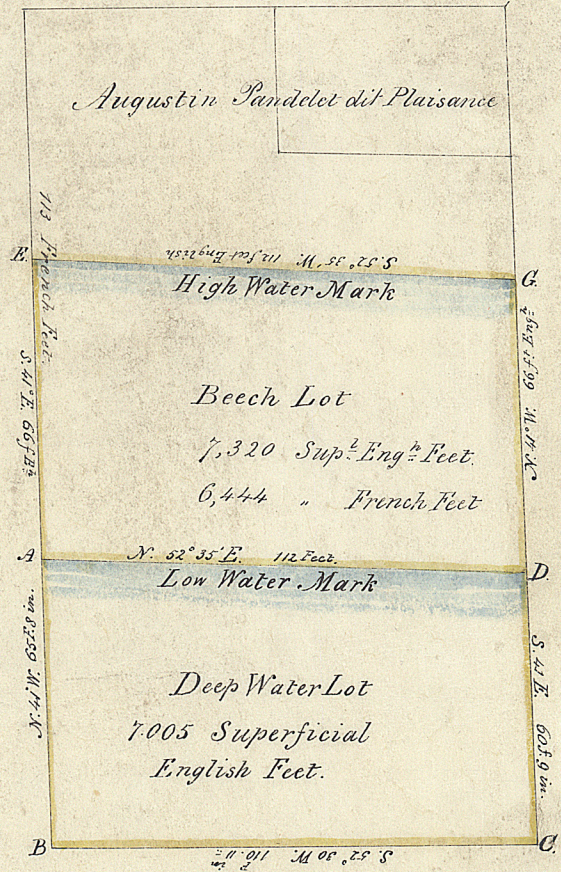 Augustin Pandelet dit Plaisance
113 French Feet.
E.
S. 52° 35' W. 112 feet English
G
High Water Mark
S. 41° E. 66f. Eh
Beech Lot
7,320 Supl. Engh. Feet.
6,444 " French Feet
A
N. 52° 35' E. 112 Feet.
D.
Low Water Mark
N. 41. W. 59f. 8 in.
Deep Water Lot
7.005 Superficial
English Feet.
S. 41 E. 60f. 9 in.
B
S. 52° 30 W. 110. 11
C.